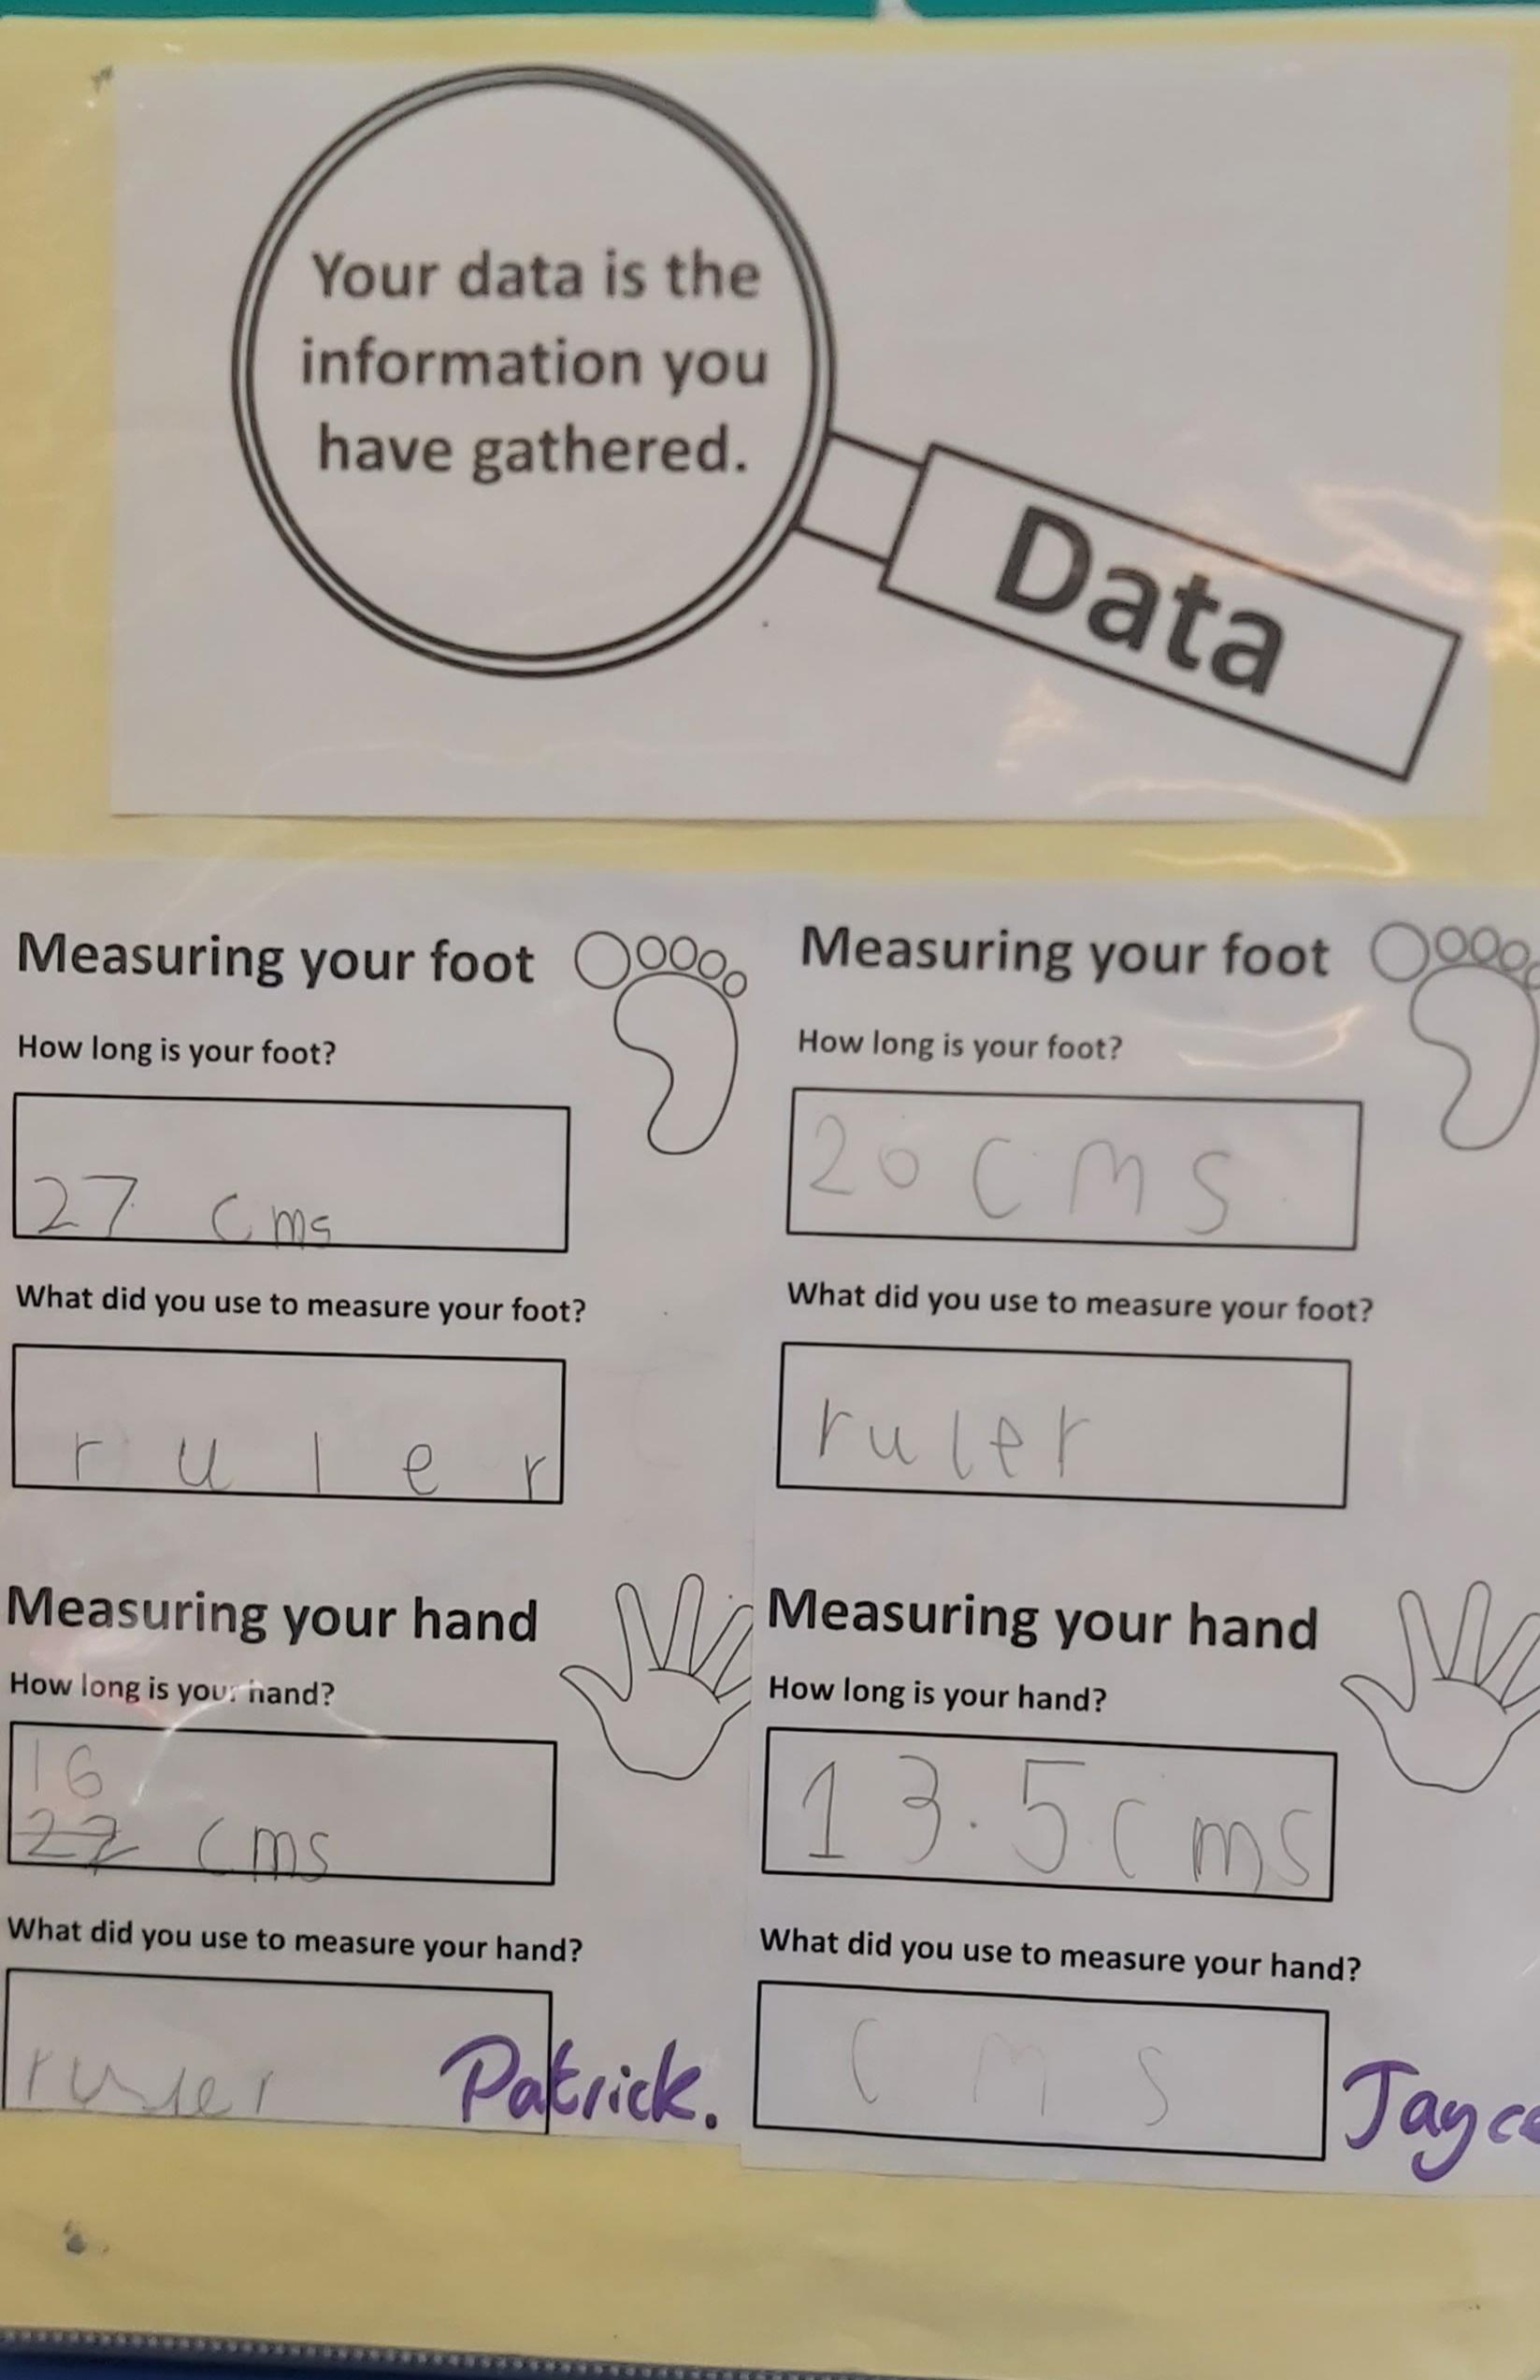 Your data is the
information you
have gathered.
Data
Measuring your foot
How long is your foot?
27 cms
What did you use to measure your foot?
ruler
Measuring your hand
How long is your hand?
16
27 cms
What did you use to measure your hand?
ruler
Patrick.
Measuring your foot
How long is your foot?
20 cms
What did you use to measure your foot?
ruler
Measuring your hand
How long is your hand?
13.5 cms
What did you use to measure your hand?
cms